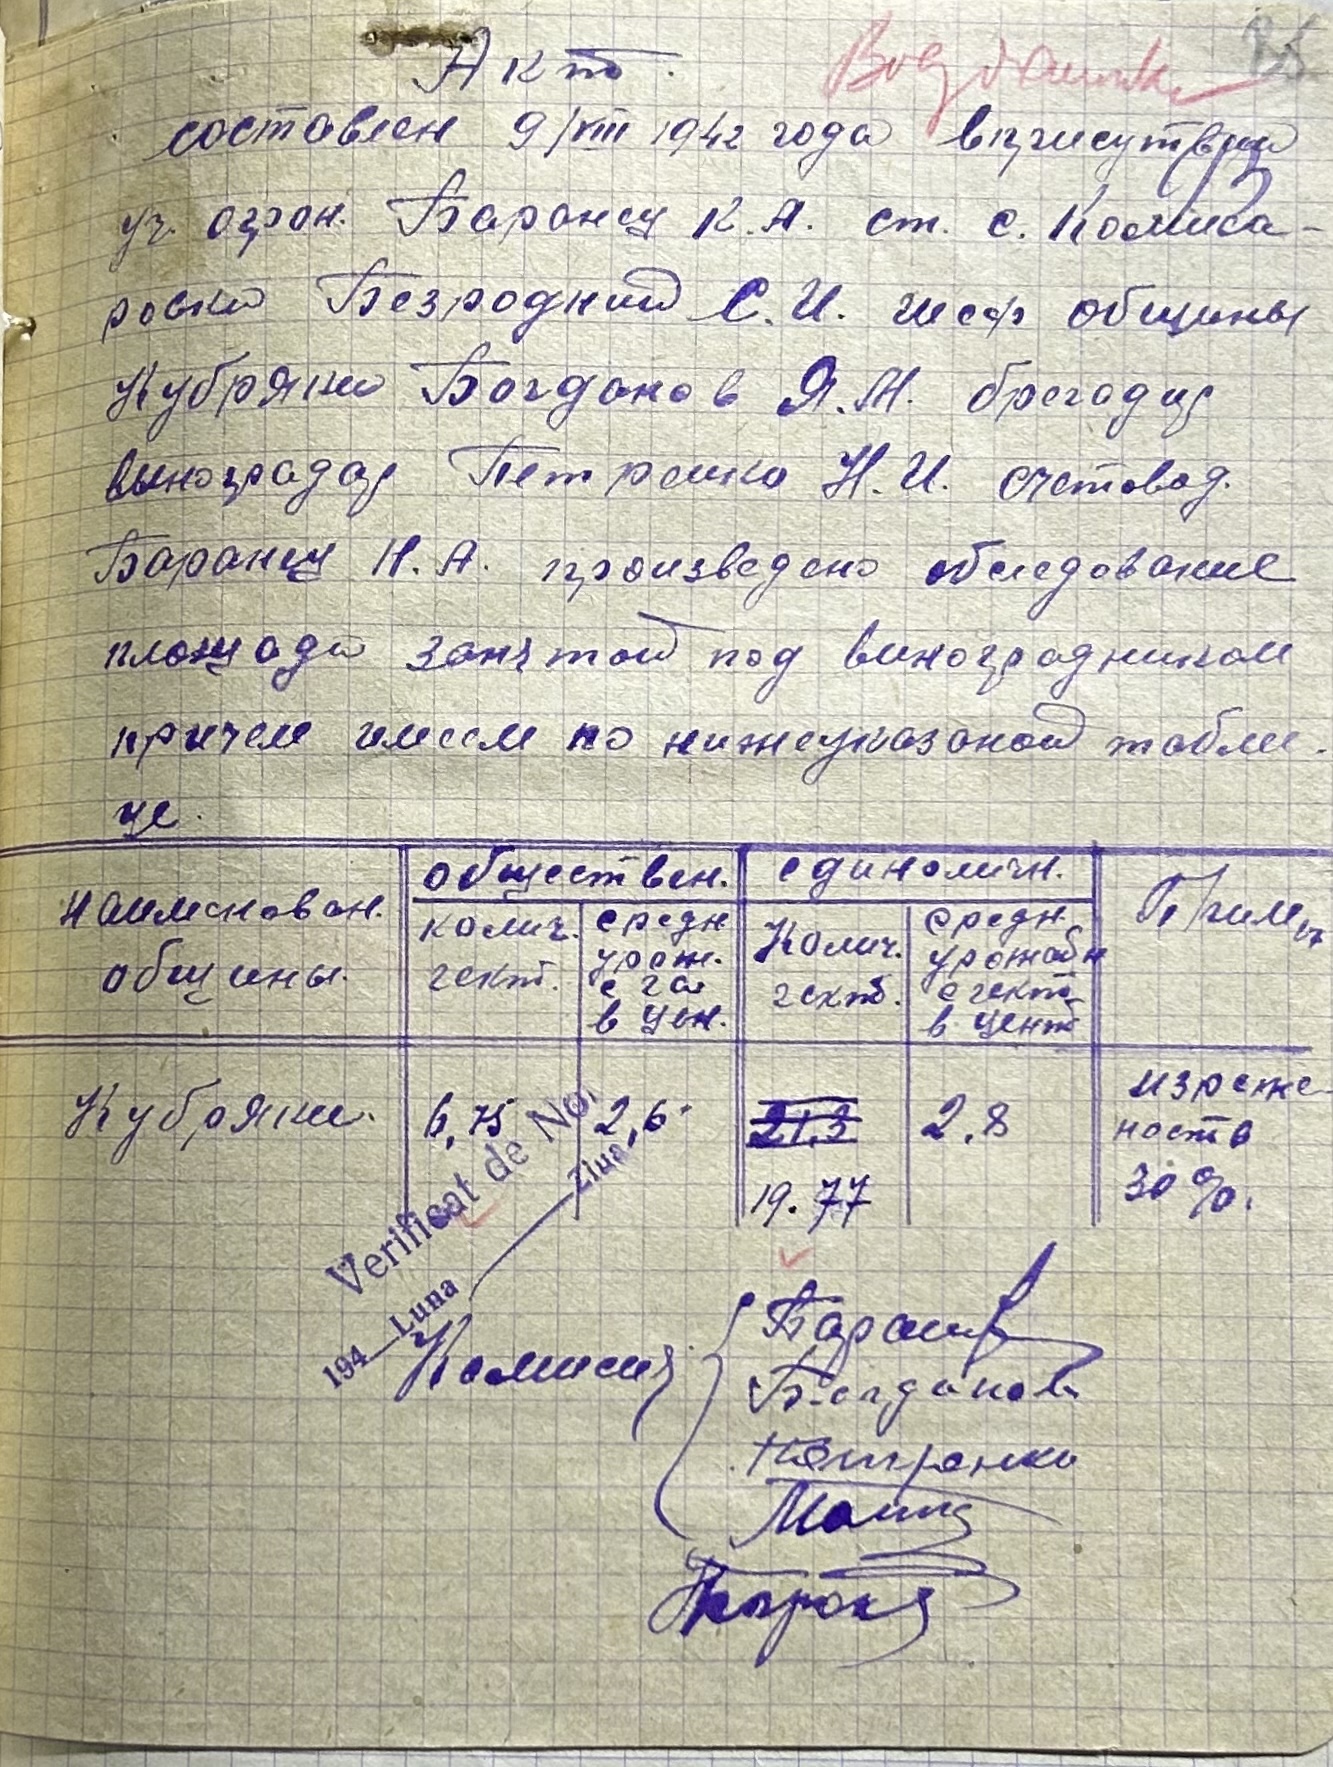 Акт.
Bogdanovka
85
составлен 9/VIII 1942 года в присутствии
уч. агрон. Баранец К.А. ст. с. Комиса-
ровки Безродний С.И. шеф общины
Кубряки Богданов Я.М. бригадир
виноградар Петренко Н.И. счетовод.
Баранец Н.А. произведено обследование
площади занятой под виноградником
причем имеем по нижеуказаной табли-
це.
Наименован. общины.
обществен.
колич. гект.
средн. урож. с га в цен.
единоличн.
Колич. гект.
средн. урожайн с гект в цент
Примеч
Кубряки. 6,75 2,6 21,3 2,8 изреже-
ность
19.77 30%.
Verificat de Noi
194 Luna Ziua
Комисия
Баранец
Богданов
Петренко